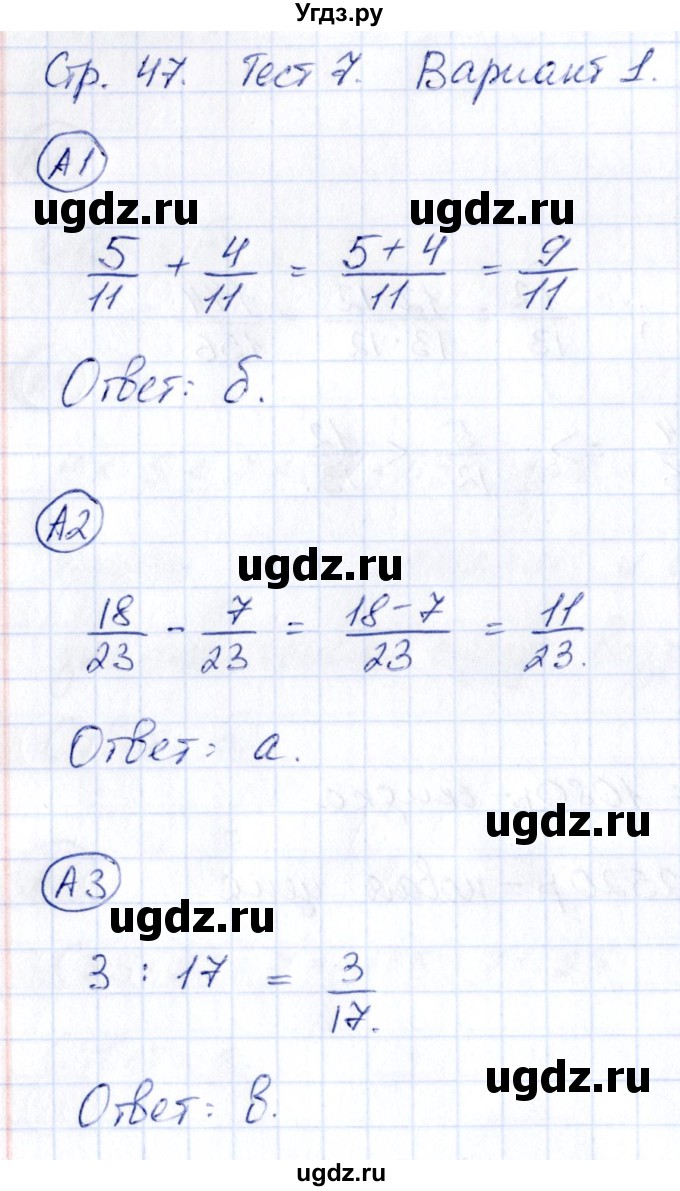 Угдз.ру
Стр. 47. Тест 7. Вариант 1.
А1
ugdz.ru ugdz.ru
5/11 + 4/11 = 5+4/11 = 9/11
Ответ: б.
А2
ugdz.ru
18/23 - 7/23 = 18-7/23 = 11/23.
Ответ: а.
ugdz.ru
А3
ugdz.ru
3 : 17 = 3/17.
ugdz.ru
Ответ: в.
ugdz.ru